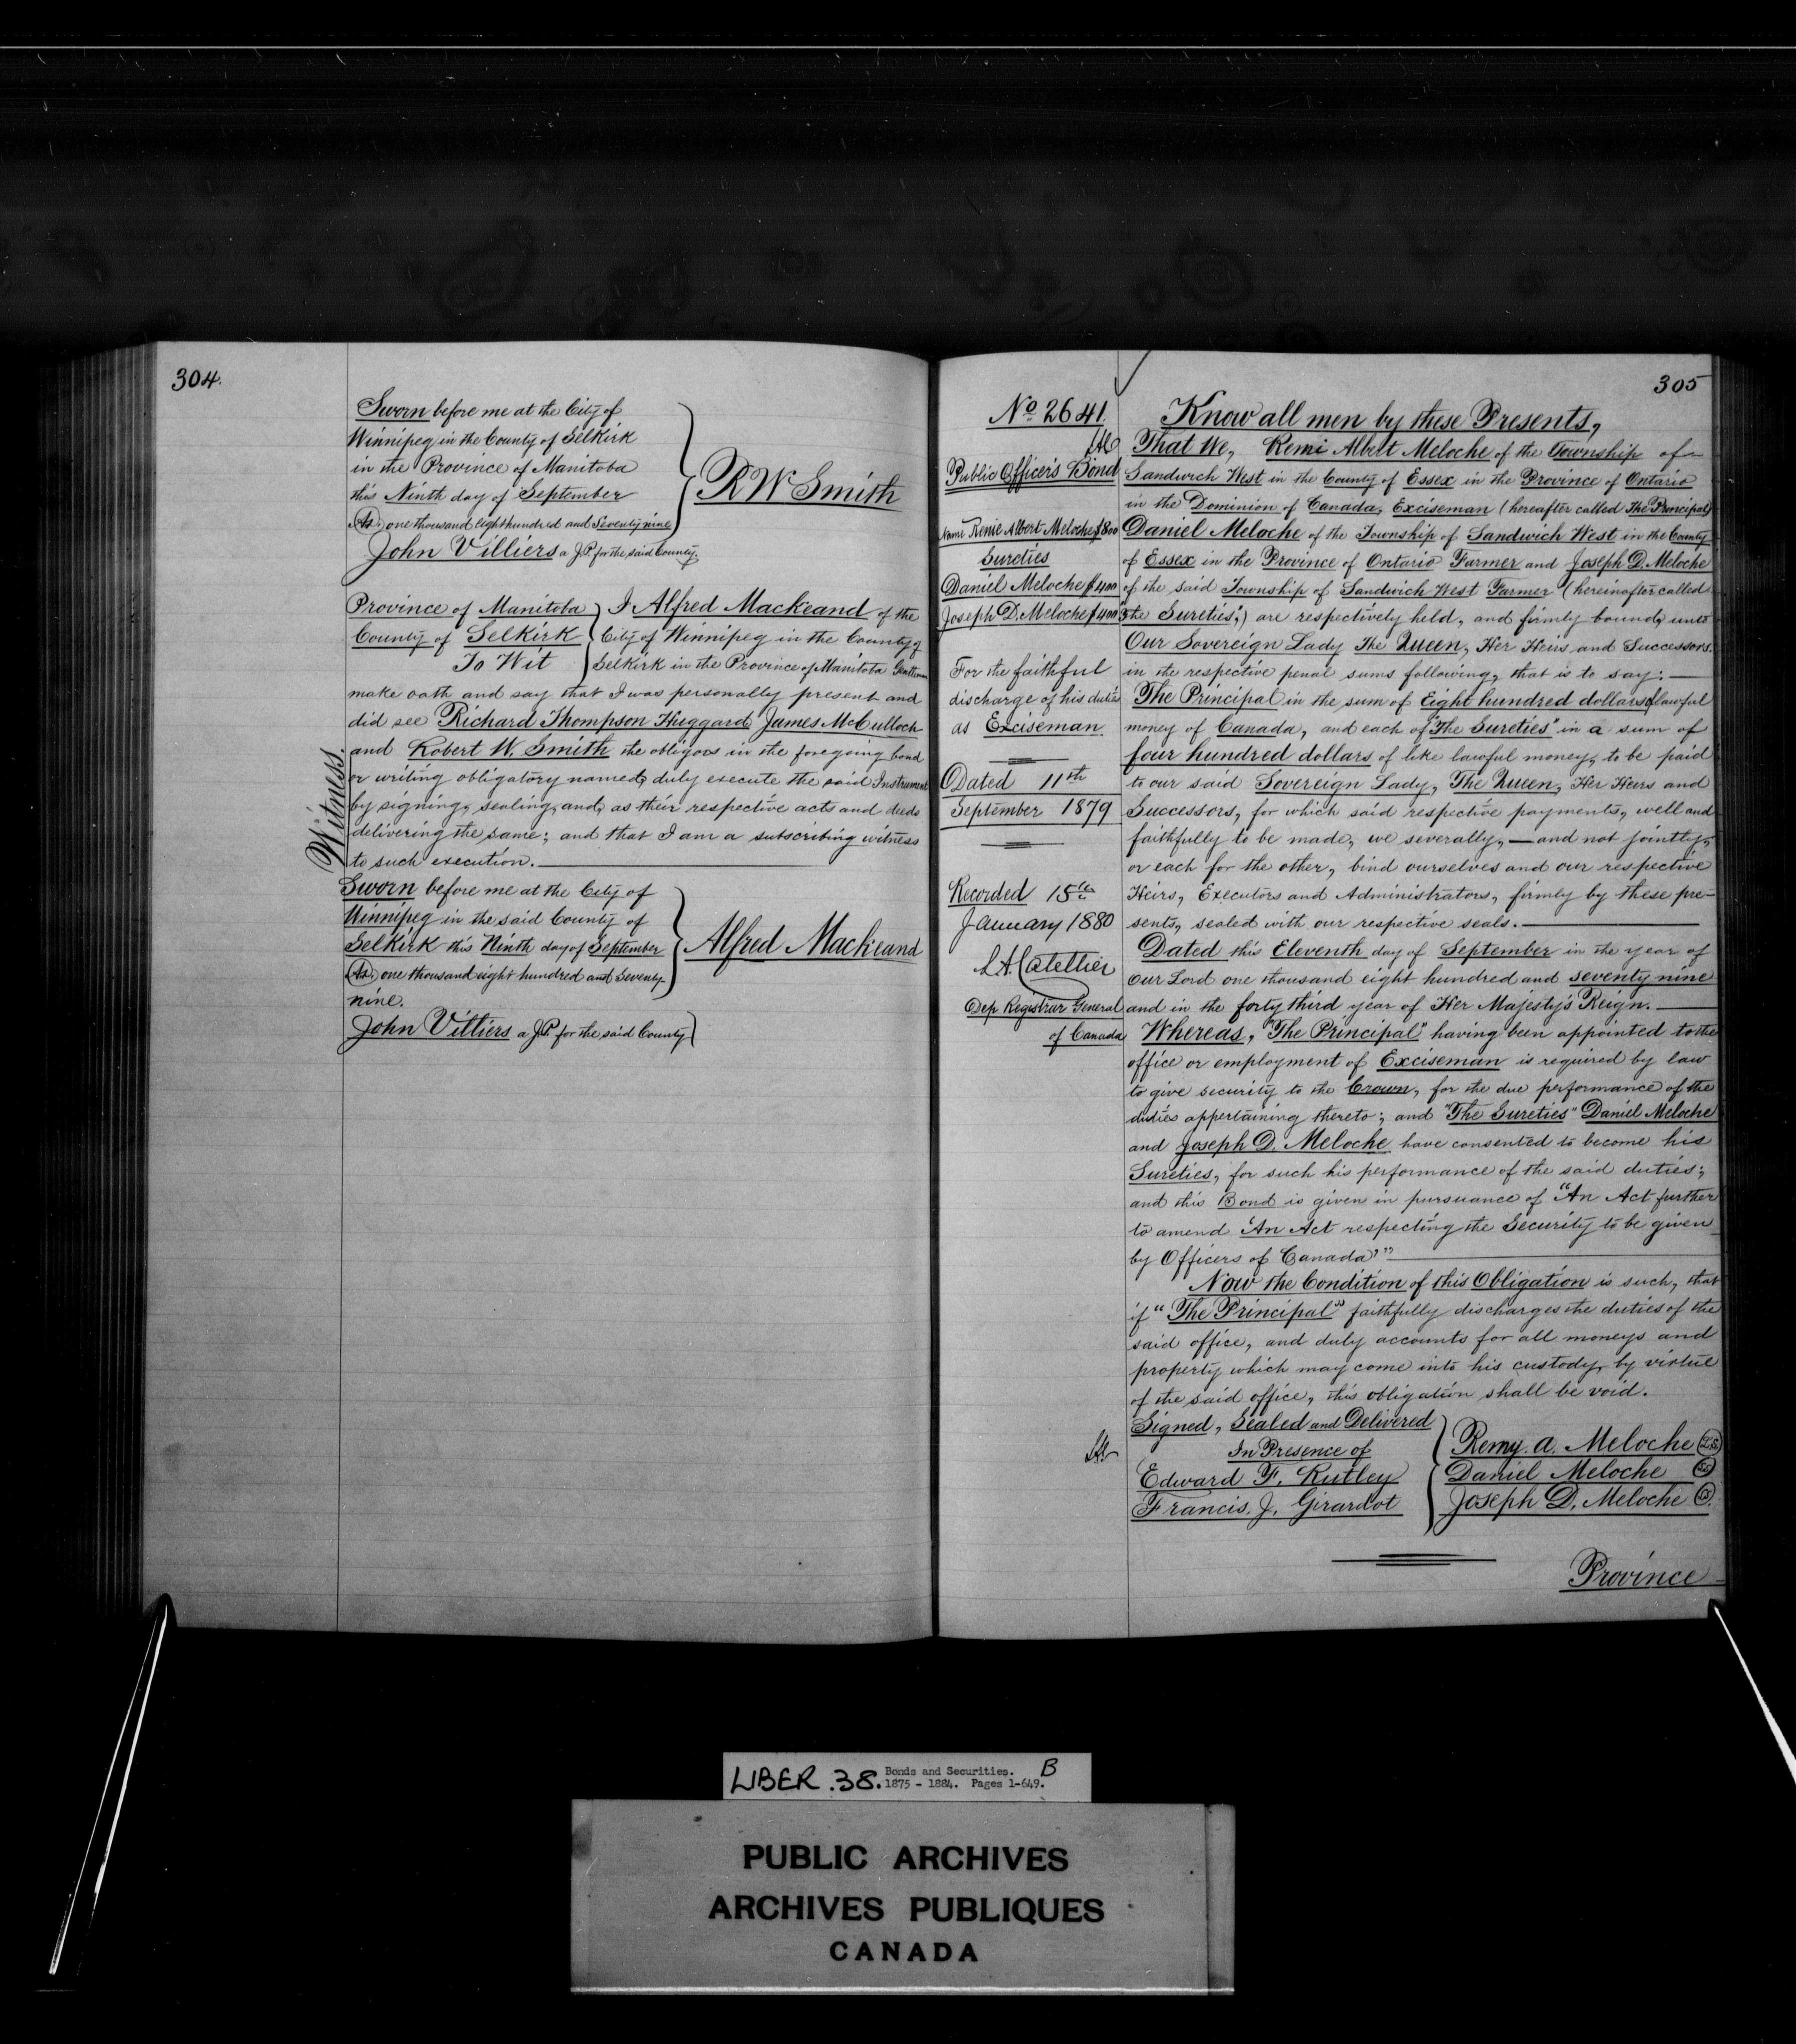 304.
Sworn before me at the City of
Winnipeg in the County of Selkirk
in the Province of Manitoba
this Ninth day of September
one thousand eight hundred and Seventy nine
R W Smith
John Villiers a J.P. for the said County.
Province of Manitoba
County of Selkirk
To Wit
I Alfred Mackeand of the
City of Winnipeg in the County of
Selkirk in the Province of Manitoba Gentleman
make oath and say that I was personally present and
did see Richard Thompson Huggard, James McCulloch
and Robert W. Smith the obligors in the foregoing bond
or writing obligatory named, duly execute the said Instrument
by signing, sealing, and, as their respective acts and deeds
delivering the same; and that I am a subscribing witness
to such execution.
Witness.
Sworn before me at the City of
Winnipeg in the said County of
Selkirk this Ninth day of September
one thousand eight hundred and Seventy
nine.
Alfred Mackeand
John Villiers a J.P. for the said County
305
No 2641.
Public Officer's Bond
Name Remie Albert Meloche $800
Sureties
Daniel Meloche $400
Joseph D. Meloche $400
For the faithful
discharge of his duties
as Exciseman
Dated 11th
September 1879
Recorded 15th
January 1880
L A Catellier
Dep Registrar General
of Canada
Know all men by these Presents,
That We, Remi Albert Meloche of the Township of
Sandwich West in the County of Essex in the Province of Ontario
in the Dominion of Canada, Exciseman (hereafter called The Principal)
Daniel Meloche of the Township of Sandwich West in the County
of Essex in the Province of Ontario Farmer and Joseph D. Meloche
of the said Township of Sandwich West Farmer (hereinafter called
"The Sureties") are respectively held, and firmly bound, unto
Our Sovereign Lady The Queen, Her Heirs and Successors.
in the respective penal sums following, that is to say:
The Principal in the sum of Eight hundred dollars of lawful
money of Canada, and each of "The Sureties" in a sum of
four hundred dollars of like lawful money, to be paid
to our said Sovereign Lady, The Queen, Her Heirs and
Successors, for which said respective payments, well and
faithfully to be made, we severally, — and not jointly,
or each for the other, bind ourselves and our respective
Heirs, Executors and Administrators, firmly by these pre-
sents, sealed with our respective seals.
Dated this Eleventh day of September in the year of
Our Lord one thousand eight hundred and seventy nine
and in the forty third year of Her Majesty's Reign.
Whereas, "The Principal" having been appointed to the
office or employment of Exciseman is required by law
to give security to the Crown, for the due performance of the
duties appertaining thereto; and "The Sureties" Daniel Meloche
and Joseph D. Meloche have consented to become his
Sureties, for such his performance of the said duties;
and this Bond is given in pursuance of "An Act further
to amend 'An Act respecting the Security to be given
by Officers of Canada'"
Now the Condition of this Obligation is such, that
if "The Principal" faithfully discharges the duties of the
said office, and duly accounts for all moneys and
property which may come into his custody, by virtue
of the said office, this obligation shall be void.
Signed, Sealed and Delivered
In Presence of
Edward F. Rutley
Francis. J. Girardot
Remy. A. Meloche L.S.
Daniel Meloche L.S.
Joseph D. Meloche L.S.
Province
LIBER .38. Bonds and Securities. B
1875 - 1884. Pages 1-649.
PUBLIC ARCHIVES
ARCHIVES PUBLIQUES
CANADA